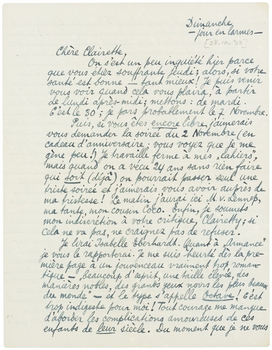 Dimanche,
— jour en larmes —
[28.10.
Chère Clairette,
On s'est un peu inquiété hier parce
que vous étiez souffrante jeudi; alors, si votre
santé est bonne — tant mieux! Je puis venir
vous voir quand cela vous plaira, à partir
de lundi après-midi; mettons: de mardi.
C'est le 30; je pars probablement le 7 Novembre.
Puis, si vous êtes encore libre, j'aimerais
vous demander la soirée du 2 Novembre (en
cadeau d'anniversaire, vous voyez que je me
gêne peu!) Je travaille ferme à mes "Cahiers",
mais quand on a vécu 24 ans sans rien faire
qui soit (déjà) on pourrait passer seul une
triste soirée et j'aimerais vous avoir auprès de
ma tristesse! Le matin j'aurai ici M. v. Lennep,
ma tante, mon cousin Coco. Enfin, je soumets
mon insurrection à votre critique, Clairette; si
cela ne va pas, ne craignez pas de refuser.
Je lirai Isabelle Eberhardt. Quant à "Armance"
je vous le rapporterai. Je me suis heurté dès la première
page à un jouvenceau vraiment trop romantique
— beaucoup d'esprit, une taille élevée, des
manières nobles, des grands yeux noirs les plus beaux
du monde — et le type s'appelle Octave! C'est trop
indigeste pour moi! Tout courage me manque
d'aborder les complications amoureuses de ces
enfants de leur siècle. Du moment que je ne vous